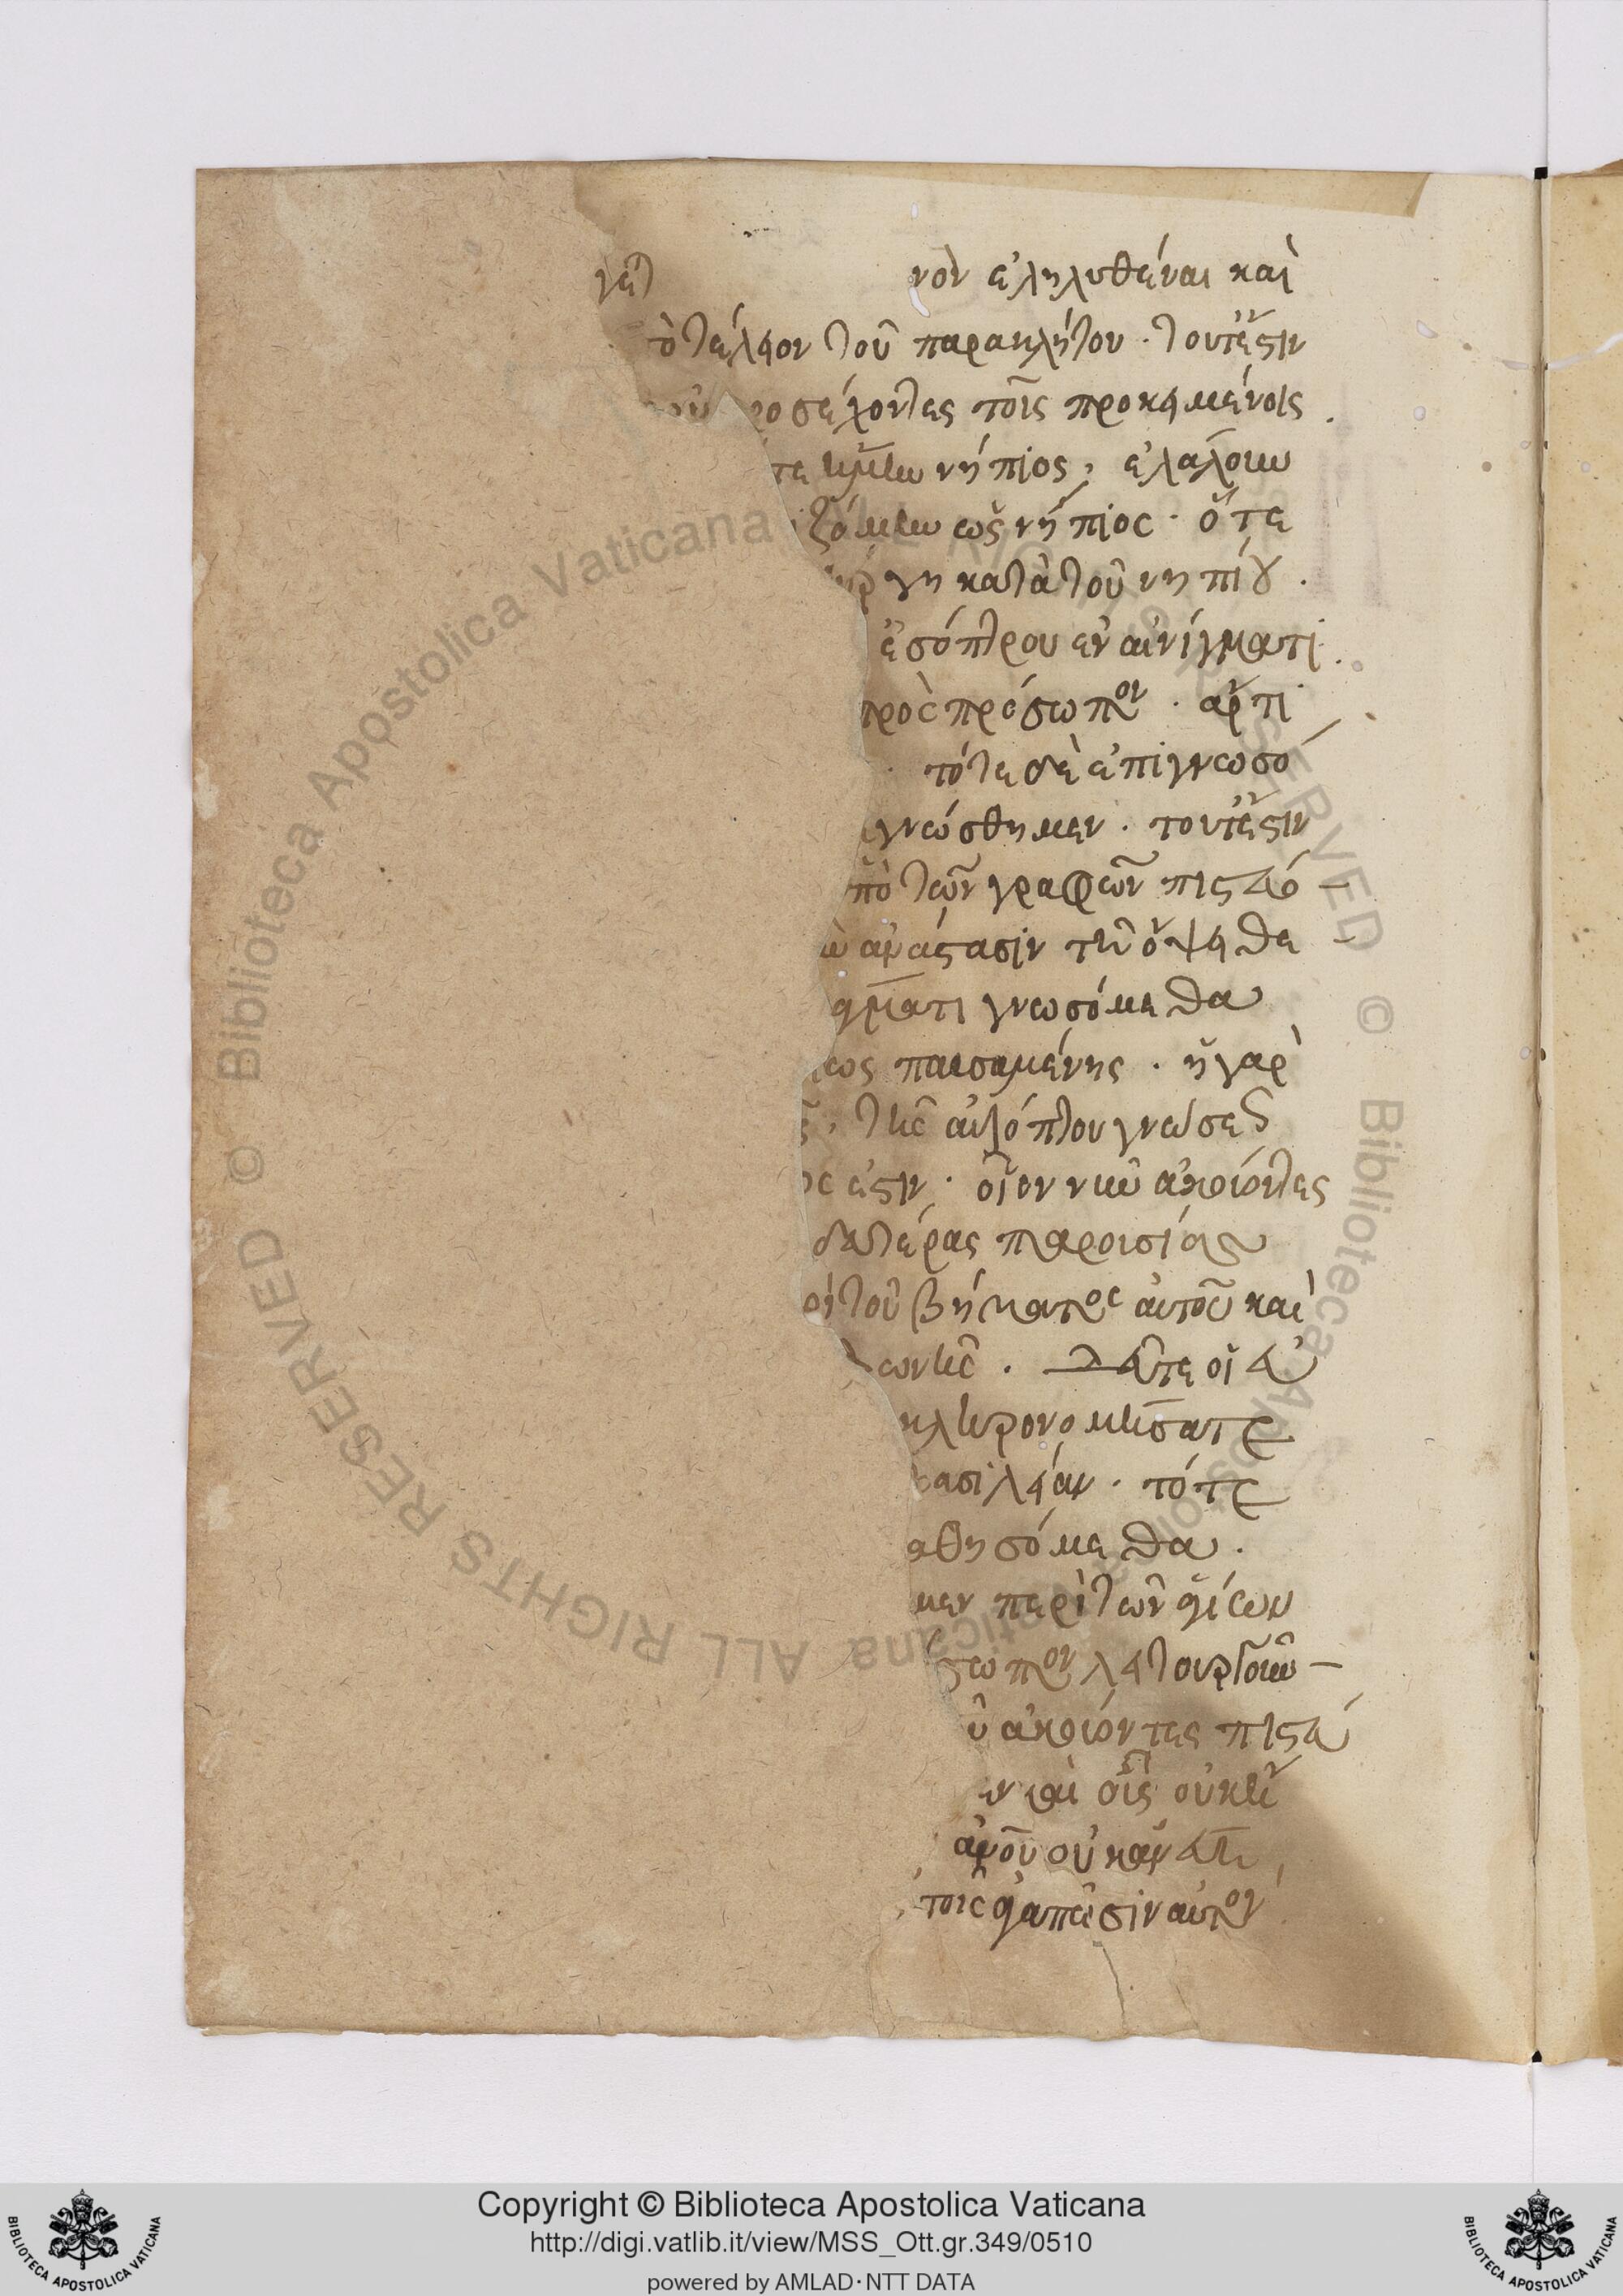 νὸν ἐληλυθέναι καὶ
τὸ τέλειον τοῦ παρακλήτου · τουτέστιν
προσέχοντες τοῖς προκειμένοις
τε ἤμην νήπιος, ἐλάλουν
ζόμην ὡς νήπιος · ὅτε
γη κατὰ τοῦ νηπίου ·
ἐσόπτρου ἐν αἰνίγματι ·
πρὸς πρόσωπον · ἄρτι
τότε δὲ ἐπιγνώσο
γνώσθημεν · τουτέστιν
πὸ τῶν γραφῶν πιστευό
ἀνάστασιν τῇ ὄψει θε
γματι γνωσόμεθα
εως παυσαμένης · ἡ γὰρ
τῆς αὐτόπτου γνώσεως
ος ἐστιν · οἷον νῦν ἀκούοντες
δευτέρας παρουσίας
τοῦ βήματος αὐτοῦ καὶ
ωνῆς · δεῦτε οἱ εὐ
κληρονομήσατε
βασιλείαν · τότε
αθησόμεθα ·
μεν περὶ τῶν ἁγίων
σωπον λειτουργοῦν
ἀκούοντες πιστεύ
οἷς οὐκ ἦν
οὐκ ἂν εἴπῃ
τοῖς ἀγαπῶσιν αὐτόν
Copyright © Biblioteca Apostolica Vaticana
http://digi.vatlib.it/view/MSS_Ott.gr.349/0510
powered by AMLAD·NTT DATA
BIBLIOTECA APOSTOLICA VATICANA
BIBLIOTECA APOSTOLICA VATICANA
© Biblioteca Apostolica Vaticana ALL RIGHTS RESERVED
© Biblioteca Apostolica Vaticana ALL RIGHTS RESERVED